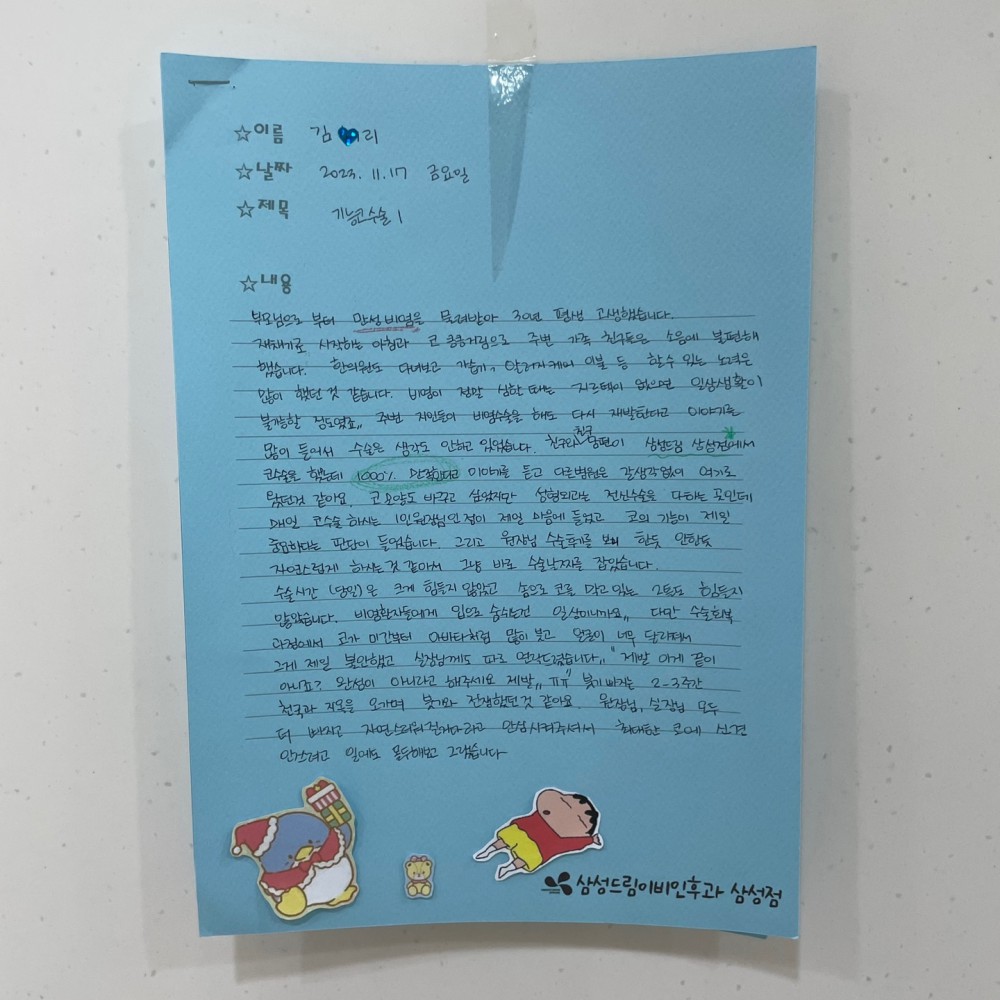 ☆이름 김 리
☆날짜 2023. 11. 17 금요일
☆제목 기능코수술 1
☆내용
부모님으로 부터 만성비염을 물려받아 30년 평생 고생했습니다.
재채기로 시작하는 아침과 코 킁킁거림으로 주변 가족 친구들은 소음에 불편해
했습니다. 한의원도 다녀보고 가습기, 알러지케어 이불 등 할 수 있는 노력은
많이 했던 것 같습니다. 비염이 정말 심한 때는 지르텍이 없으면 일상생활이
불가능할 정도였죠,, 주변 지인들이 비염수술을 해도 다시 재발한다고 이야기를
많이 들어서 수술은 생각도 안하고 있었습니다. 친구와 친구 남편이 삼성드림 삼성점에서
코수술을 했는데 1000% 만족한다고 이야기를 듣고 다른병원은 갈생각 없이 여기로
왔던것 같아요. 코 모양도 바꾸고 싶었지만 성형외과는 전신수술을 다하는 곳인데
매일 코수술 하시는 1인 원장님인 점이 제일 마음에 들었고 코의 기능이 제일
중요하다는 판단이 들었습니다. 그리고 원장님 수술후기를 보니 한듯 안한듯
자연스럽게 하시는것 같아서 그냥 바로 수술날짜를 잡았습니다.
수술시간 (당일)은 크게 힘들지 않았고 솜으로 코를 막고 있는 2틀도 힘들지
않았습니다. 비염환자들에게 입으로 숨쉬는건 일상이니까요,, 다만 수술회복
과정에서 코가 미간부터 아바타처럼 많이 붓고 얼굴이 너무 달라져서
그게 제일 불안했고 실장님께도 따로 연락드렸습니다,, "제발 이게 끝이
아니죠? 완성이 아니라고 해주세요 제발,, ㅠㅠ" 붓기 빠지는 2-3주간
천국과 지옥을 오가며 붓기와 전쟁했던것 같아요. 원장님, 실장님 모두
더 빠지고 자연스러워진다고 안심시켜주셔서 최대한 코에 신경
안쓰려고 일에도 몰두해보고 그랬습니다
삼성드림이비인후과 삼성점